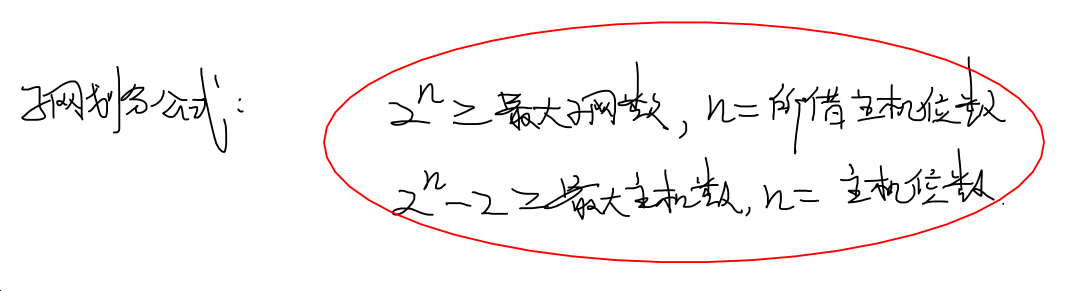 子网划分公式:
2^n ≥ 最大子网数, n=所借主机位数
2^n-2 ≥ 最大主机数, n= 主机位数.